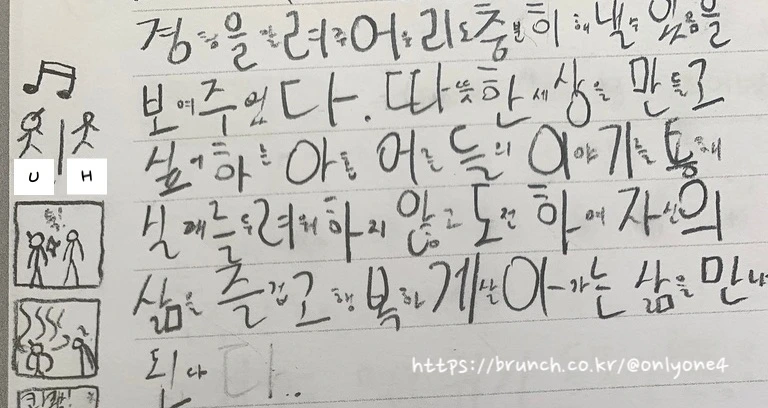 경험을 알려주어 우리도 충분히 해낼 수 있음을
보여주었다. 따뜻한 세상을 만들고
싶어하는 아들 어른들의 이야기를 통해
실패를 두려워하지 않고 도전하여 자신의
삶을 즐겁고 행복하게 살아가는 삶을 만나
된다..
U H
https://brunch.co.kr/@onlyone4